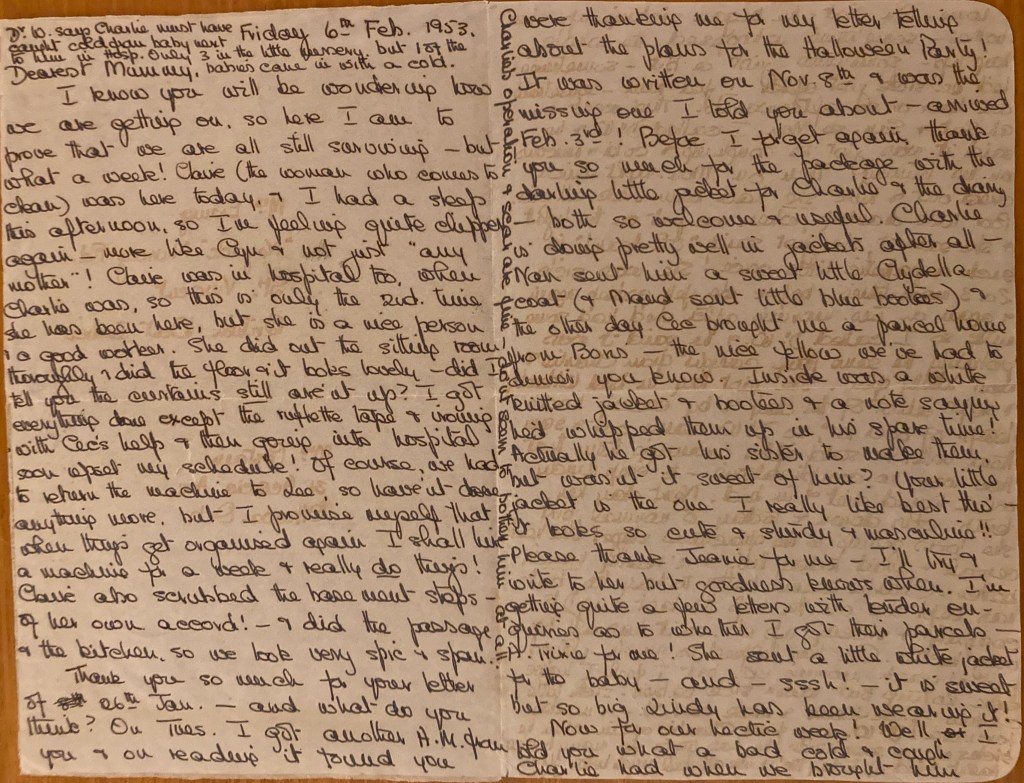 Dr. W. says Charlie must have
caught cold from baby next
to him in Hosp. Only 3 in the little nursery, but 1 of the
babies came in with a cold.
Friday 6th Feb. 1953.
Dearest Mummy,
I know you will be wondering how
we are getting on, so here I am to
prove that we are all still surviving – but
what a week! Clare (the woman who comes to
clean) was here today, & I had a sleep
this afternoon, so I'm feeling quite chipper
again – more like Cyn & not just "any
mother"! Clare was in hospital too, when
Charlie was, so this is only the 2nd. time
she has been here, but she is a nice person
& a good worker. She did out the sitting room
thoroughly & did the floor & it looks lovely – did I
tell you the curtains still aren't up? I got
everything done except the rufflette tape & ironing
with Cec's help & then going into hospital
soon upset my schedule! Of course, we had
to return the machine to Lee, so haven't done
anything more, but I promise myself that
when things get organised again I shall hire
a machine for a week & really do things!
Clare also scrubbed the basement steps –
of her own accord! – & did the passage
& the kitchen, so we look very spic & span.
Thank you so much for your letter
of 26th Jan. – and what do you
think? On Tues. I got another A.M. from
you & on reading it found you
Charlie's operation & scar are fine & don't seem to bother him at all.
were thanking me for my letter telling
about the plans for the Halloween Party!
It was written on Nov. 8th & was the
missing one I told you about – arrived
Feb. 3rd! Before I forget again, thank
you so much for the package with the
darling little jacket for Charlie & the diary
– both so welcome & useful. Charlie
is doing pretty well in jackets after all –
Nan sent him a sweet little Clydella
coat (& Maud sent little blue bootees) &
the other day Cec brought me a parcel home
from Boris – the nice fellow we've had to
dinner you know. Inside was a white
knitted jacket & bootees & a note saying
he'd whipped them up in his spare time!
Actually he got his sister to make them,
but wasn't it sweet of him? Your little
jacket is the one I really like best tho' –
it looks so cute & sturdy & masculine!!
Please thank Jeanie for me – I'll try &
write to her but goodness knows when. I'm
getting quite a few letters with tender en-
quiries as to whether I got their parcels –
A. Trixie for one! She sent a little white jacket
for the baby – and – sssh! – it is sweet
but so big Lindy has been wearing it!
Now for our hectic week! Well I
told you what a bad cold & cough
Charlie had when we brought him